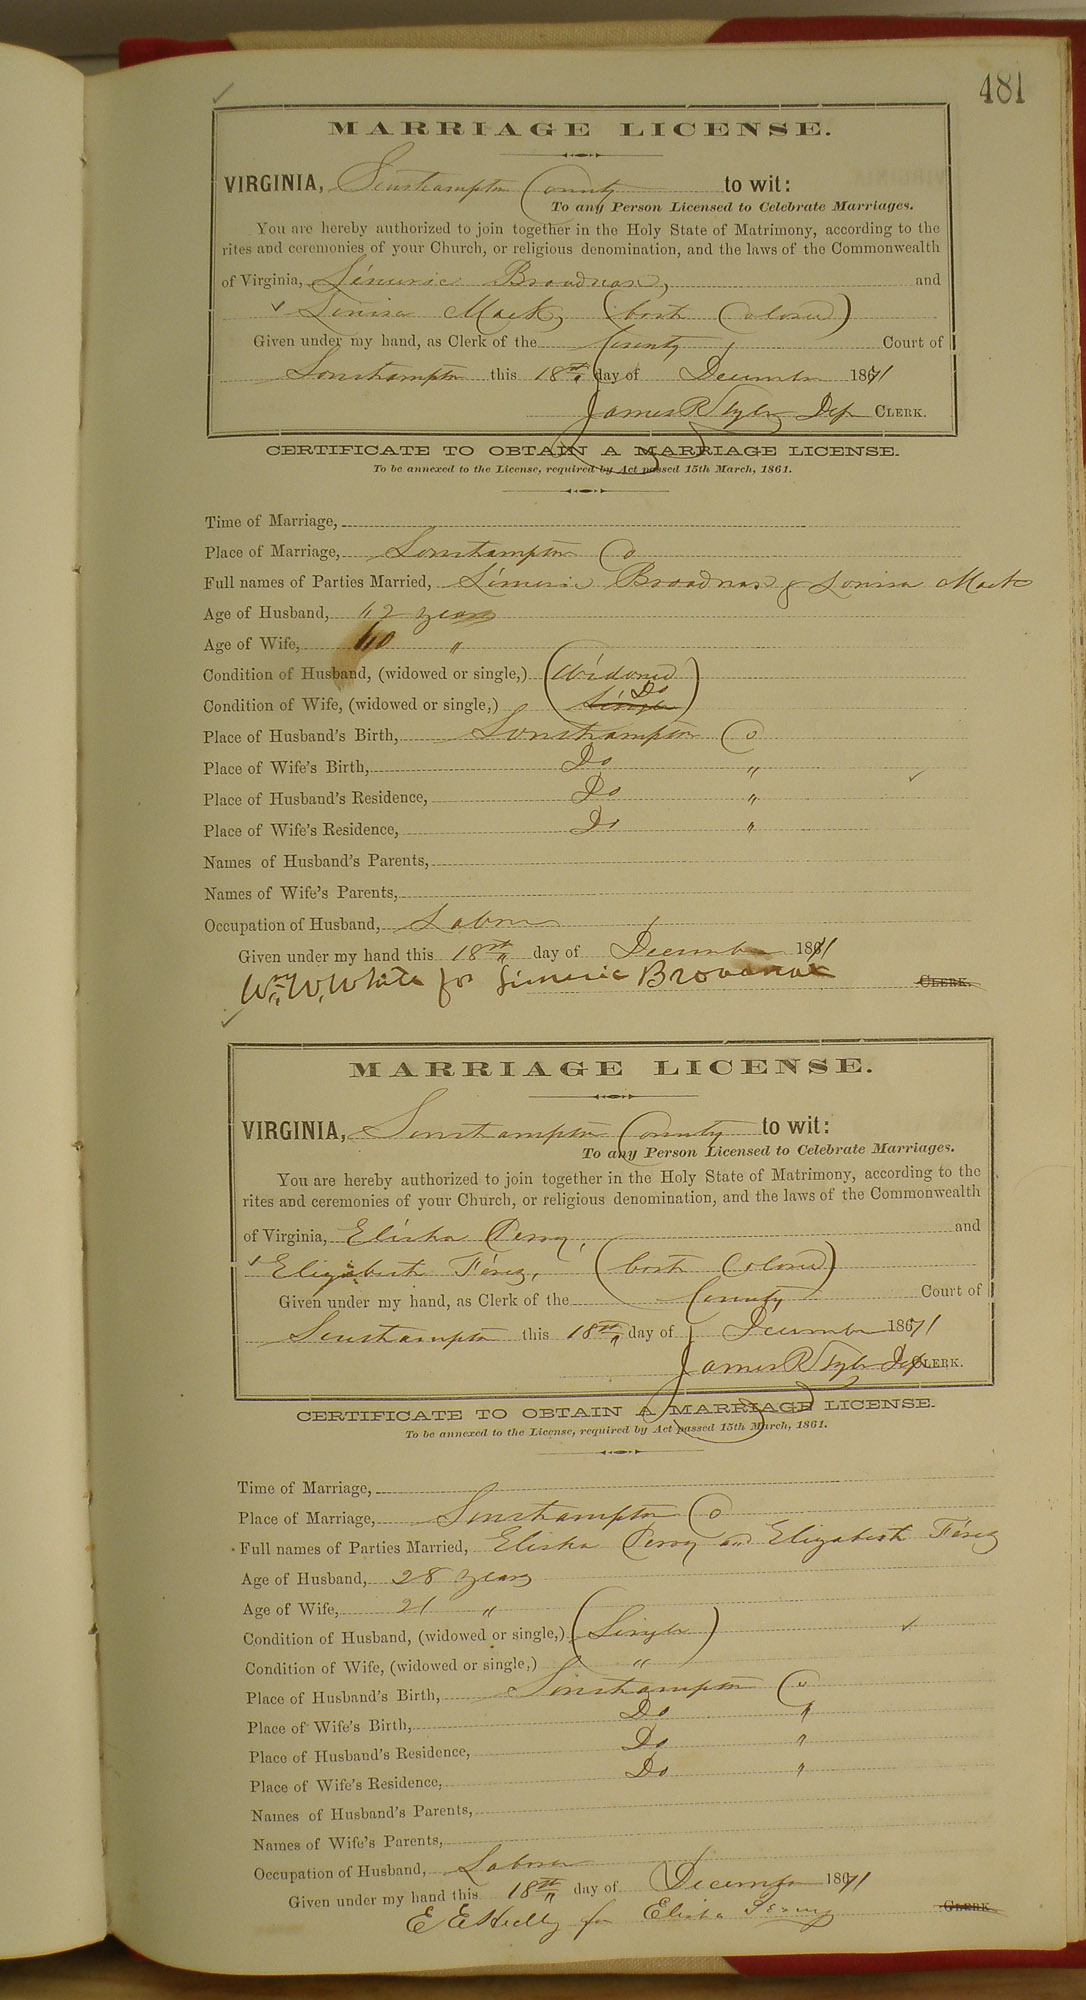 481
MARRIAGE LICENSE.
VIRGINIA, Southampton County to wit:
To any Person Licensed to Celebrate Marriages.
You are hereby authorized to join together in the Holy State of Matrimony, according to the
rites and ceremonies of your Church, or religious denomination, and the laws of the Commonwealth
of Virginia, Broadnax, and
Louisa Mack, (both Colored)
Given under my hand, as Clerk of the County Court of
Southampton this 18th day of December 1871
James R Tyler Dep CLERK.
CERTIFICATE TO OBTAIN A MARRIAGE LICENSE.
To be annexed to the License, required by Act passed 15th March, 1861.
Time of Marriage,
Place of Marriage, Southampton Co
Full names of Parties Married, Broadnax & Louisa Mack
Age of Husband, 42 years
Age of Wife, 40 "
Condition of Husband, (widowed or single,) (Widowed
Condition of Wife, (widowed or single,) Single Do)
Place of Husband's Birth, Southampton Co
Place of Wife's Birth, Do "
Place of Husband's Residence, Do "
Place of Wife's Residence, Do "
Names of Husband's Parents,
Names of Wife's Parents,
Occupation of Husband, Laborer
Given under my hand this 18th day of December 1871
Wm W. White for Broadnax CLERK.
MARRIAGE LICENSE.
VIRGINIA, Southampton County to wit:
To any Person Licensed to Celebrate Marriages.
You are hereby authorized to join together in the Holy State of Matrimony, according to the
rites and ceremonies of your Church, or religious denomination, and the laws of the Commonwealth
of Virginia, Elisha Perry, and
Elizabeth (both Colored)
Given under my hand, as Clerk of the County Court of
Southampton this 18th day of December 1871
James R Tyler Dep CLERK.
CERTIFICATE TO OBTAIN A MARRIAGE LICENSE.
To be annexed to the License, required by Act passed 15th March, 1861.
Time of Marriage,
Place of Marriage, Southampton Co
Full names of Parties Married, Elisha Perry and Elizabeth
Age of Husband, 28 years
Age of Wife, 21 "
Condition of Husband, (widowed or single,) (Single)
Condition of Wife, (widowed or single,) "
Place of Husband's Birth, Southampton Co
Place of Wife's Birth, Do "
Place of Husband's Residence, Do "
Place of Wife's Residence, Do "
Names of Husband's Parents,
Names of Wife's Parents,
Occupation of Husband, Laborer
Given under my hand this 18th day of December 1871
E E for Elisha Perry CLERK